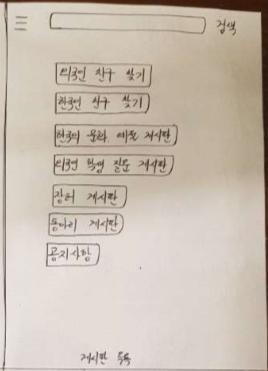 검색
외국인 친구 찾기
한국인 친구 찾기
한국의 문화, 예절 게시판
외국인 학생 질문 게시판
장터 게시판
동아리 게시판
공지사항
게시판 목록